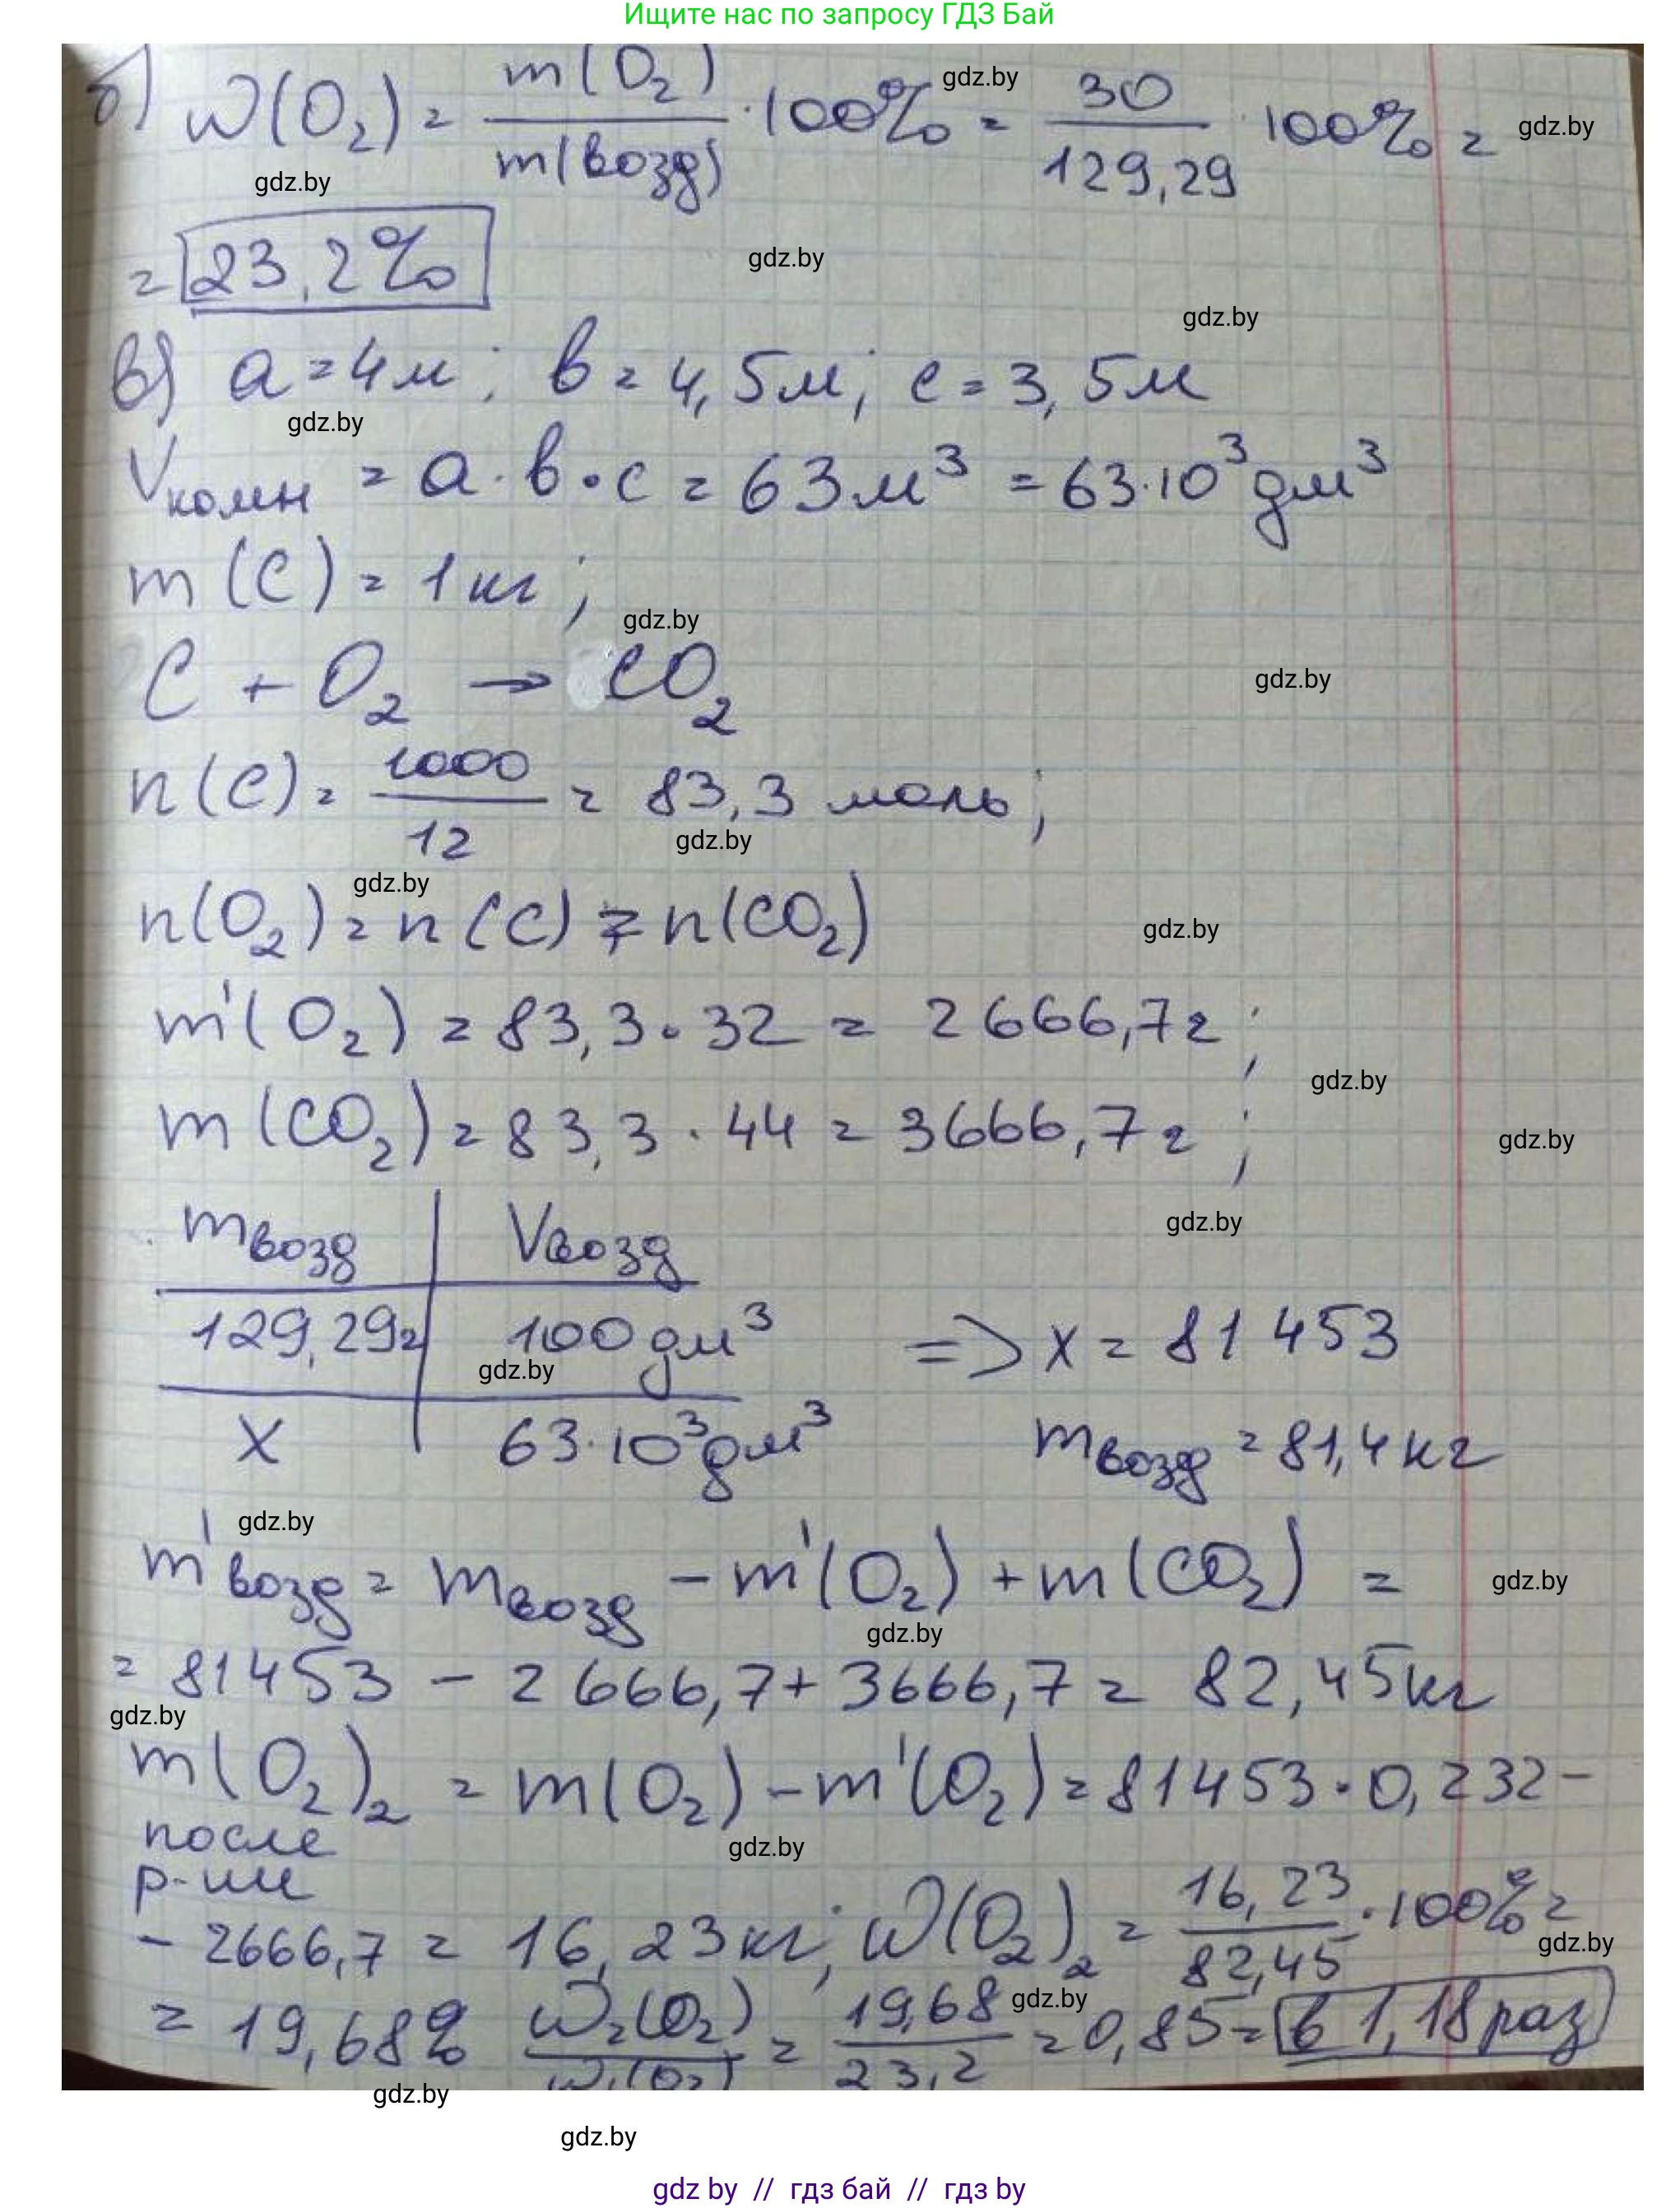 Ищите нас по запросу ГДЗ Бай
б) W(O₂) = m(O₂) / m(возд) · 100% = 30 / 129,29 · 100% =
gdz.by
gdz.by
gdz.by
= 23,2%
gdz.by
gdz.by
в) a = 4м; в = 4,5м; c = 3,5м
gdz.by
Vкомн = a · в · c = 63м³ = 63·10³ дм³
m(C) = 1кг;
gdz.by
C + O₂ → CO₂
gdz.by
n(C) = 1000 / 12 = 83,3 моль;
gdz.by
gdz.by
n(O₂) = n(C) = n(CO₂)
gdz.by
m'(O₂) = 83,3 · 32 = 2666,7г;
gdz.by
m(CO₂) = 83,3 · 44 = 3666,7г;
gdz.by
gdz.by
mвозд | Vвозд
129,29г | 100 дм³ => x = 81 453
gdz.by
x | 63·10³ дм³ mвозд = 81,4 кг
gdz.by
m'возд = mвозд − m'(O₂) + m(CO₂) =
gdz.by
gdz.by
= 81453 − 2666,7 + 3666,7 = 82,45кг
gdz.by
m(O₂)₂ = m(O₂) − m'(O₂) = 81453 · 0,232 −
после
р-ии
gdz.by
− 2666,7 = 16,23кг; W(O₂)₂ = 16,23 / 82,45 · 100% =
gdz.by
gdz.by
= 19,68% W₂(O₂) / W₁(O₂) = 19,68 / 23,2 = 0,85 = в 1,18 раз
gdz.by
gdz.by
gdz by // гдз бай // гдз by